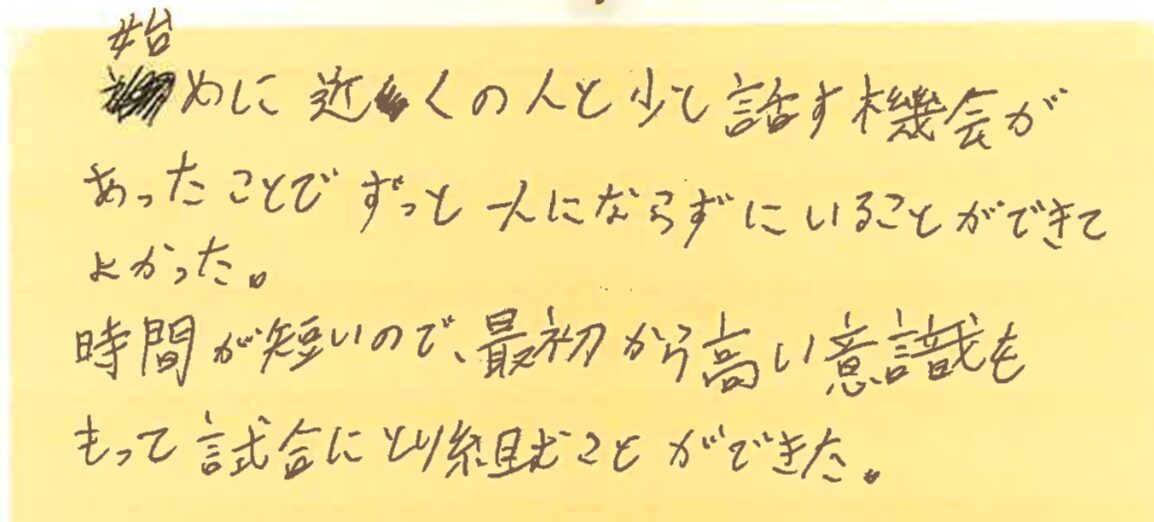 始めに近くの人と少し話す機会が
あったことでずっと一人にならずにいることができて
よかった。
時間が短いので、最初から高い意識を
もって試合に取り組むことができた。